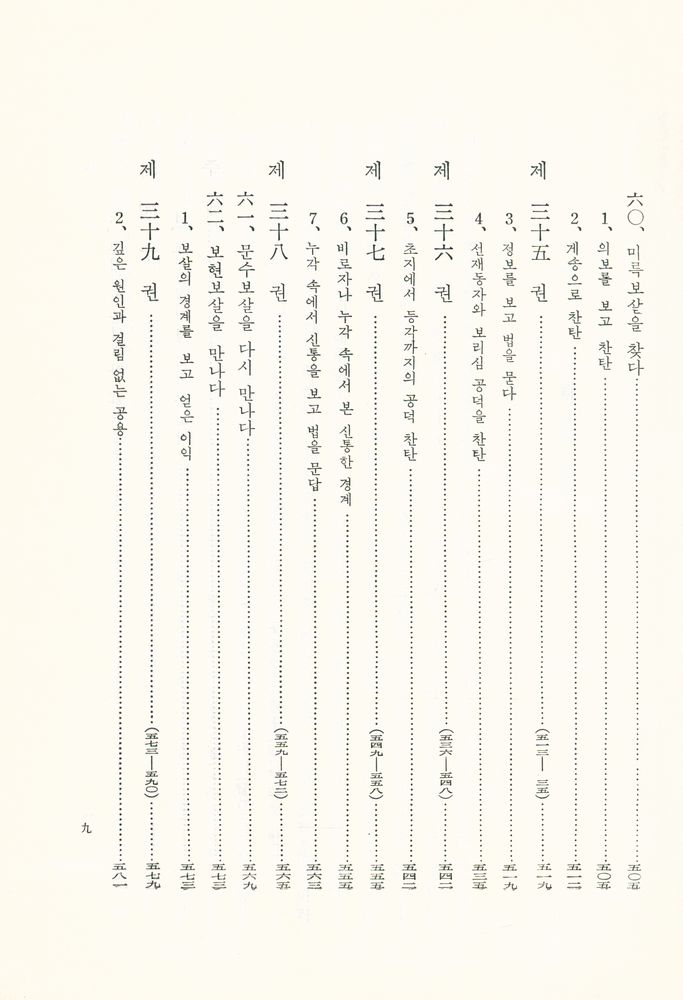 六〇、미륵보살을 찾다……五〇五
1、의보를 보고 찬탄……五〇五
2、게송으로 찬탄……五一二
제 三十五 권……(五一三—三五)……五一九
3、정보를 보고 법을 묻다……五一九
4、선재동자와 보리심 공덕을 찬탄……五三五
제 三十六 권……(五三六—五四八)……五四二
5、초지에서 등각까지의 공덕 찬탄……五四二
제 三十七 권……(五四九—五五八)……五五五
6、비로자나 누각 속에서 본 신통한 경계……五五五
7、누각 속에서 신통을 보고 법을 문답……五六三
제 三十八 권……(五五九—五七二)……五六五
六一、문수보살을 다시 만나다……五六九
六二、보현보살을 만나다……五七三
1、보살의 경계를 보고 얻은 이익……五七三
제 三十九 권……(五七三—五九〇)……五七九
2、깊은 원인과 걸림 없는 공용……五八一
九